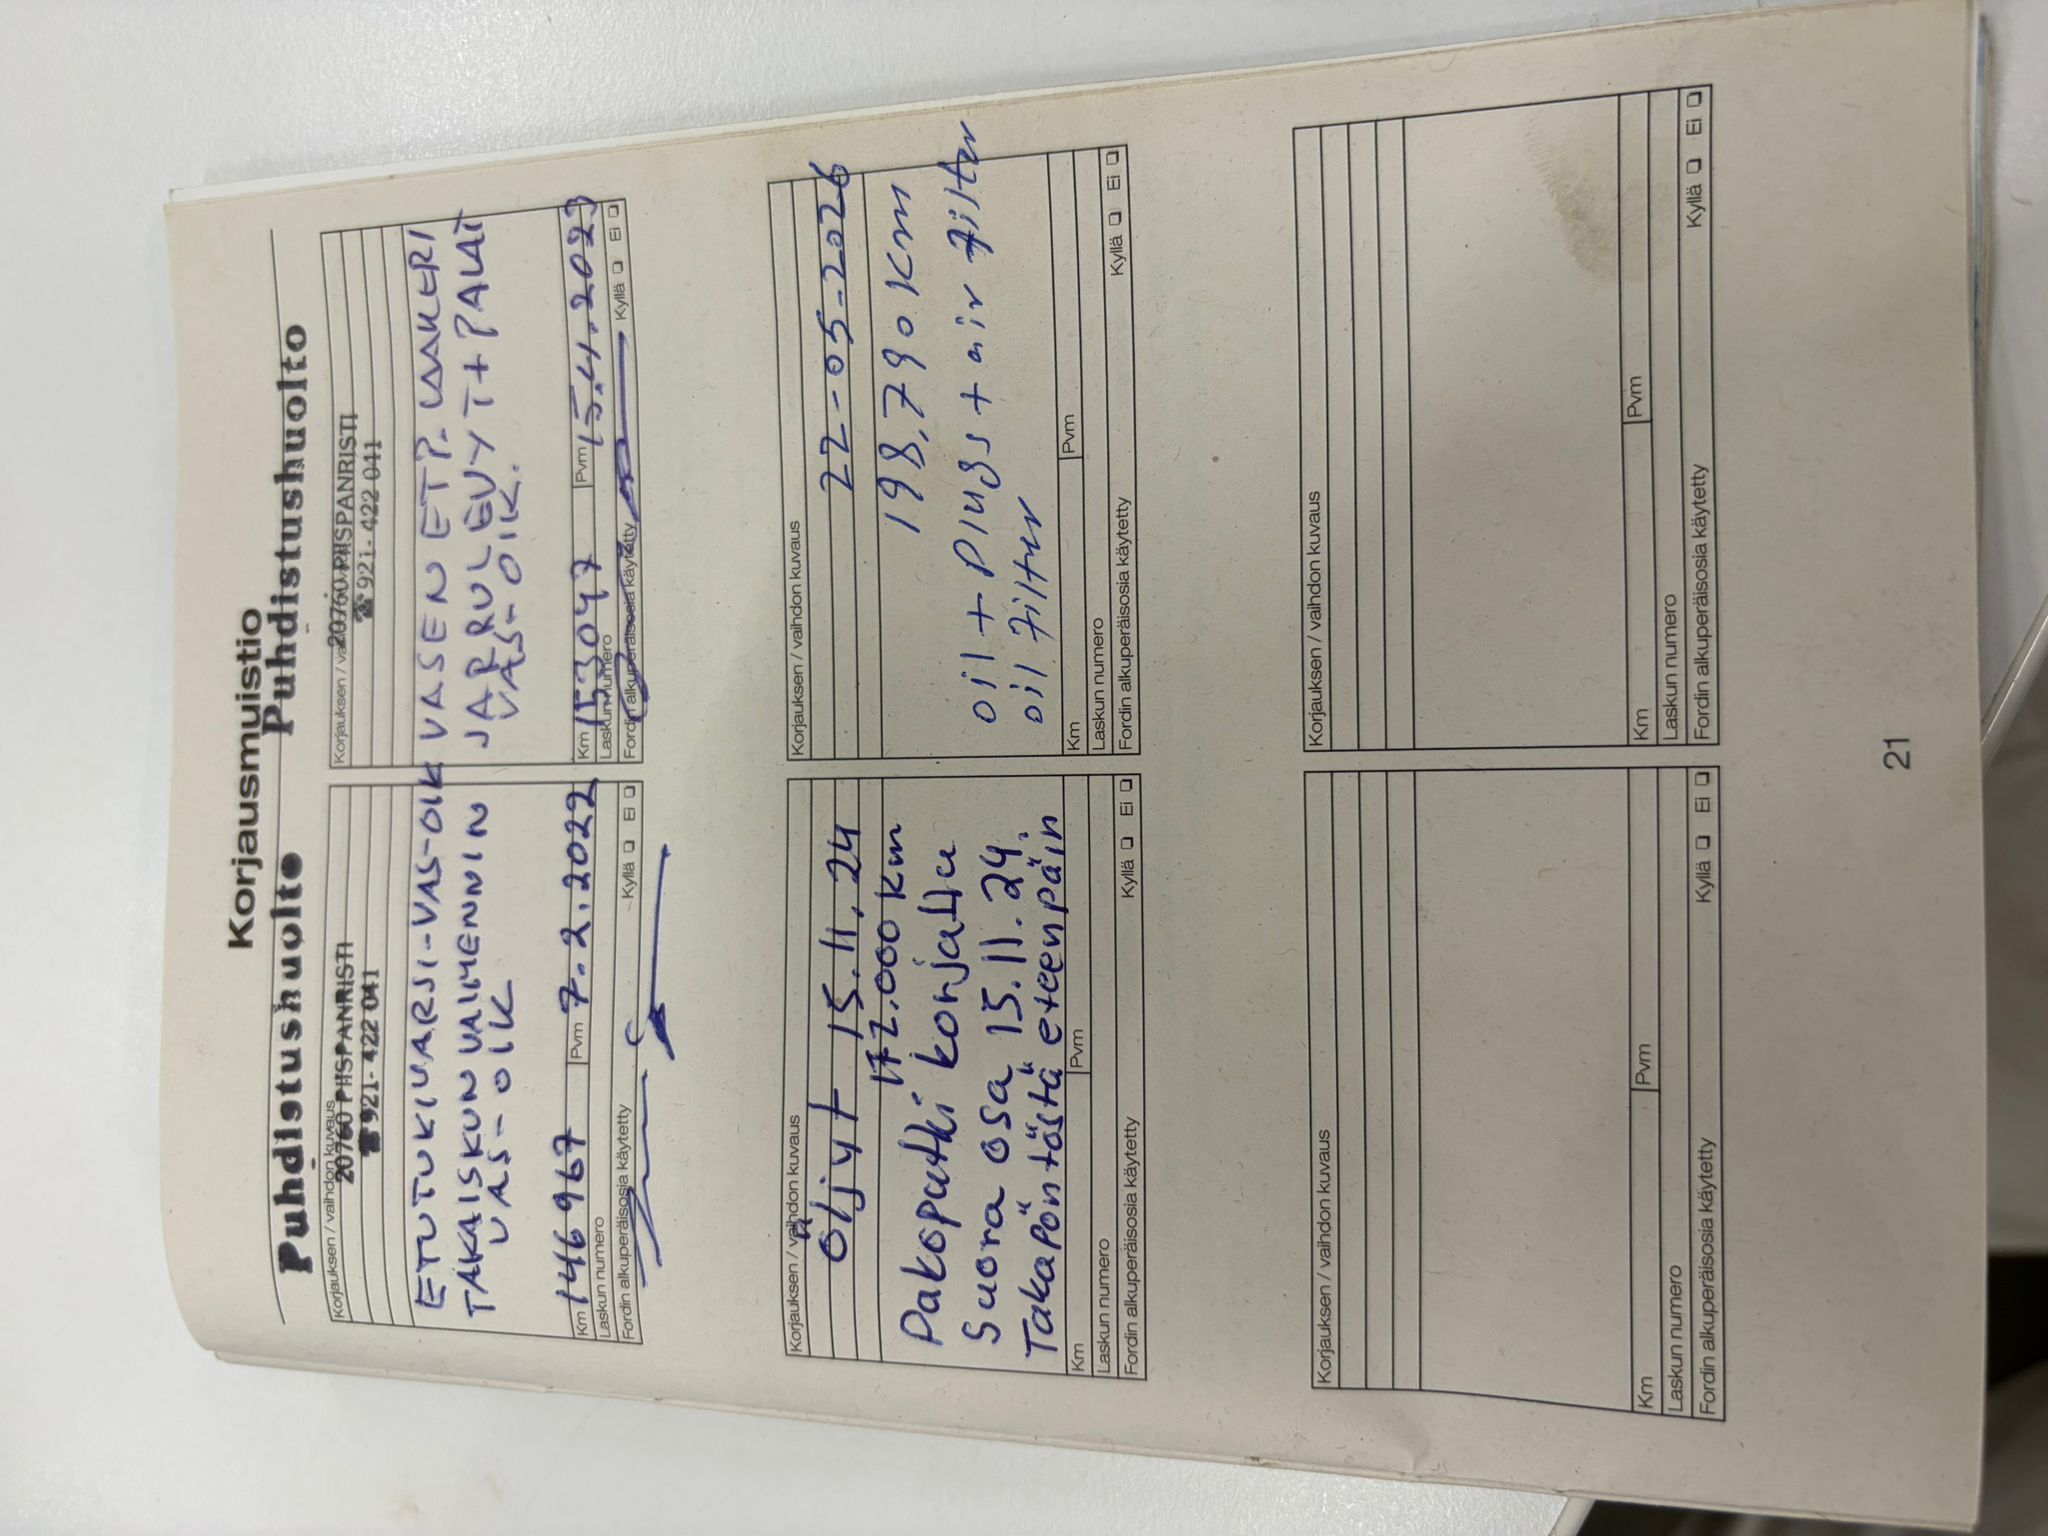 Korjausmuistio
Puhdistushuolto
20760 PIISPANRISTI
☎ 921-422 041
Korjauksen / vaihdon kuvaus
ETUTUKIVARSI-VAS-OIK
TAKAISKUNVAIMENNIN
VAS-OIK
Km 146967 Pvm 7.2.2022
Laskun numero
Fordin alkuperäisosia käytetty Kyllä ❑ Ei ❑
Puhdistushuolto
20760 PIISPANRISTI
☎ 921-422 041
Korjauksen / vaihdon kuvaus
VASEN ETP. LAAKERI
JARRULEVYT+PALAT
VAS-OIK.
Km 153047 Pvm 15.4.2023
Laskun numero
Fordin alkuperäisosia käytetty Kyllä ❑ Ei ❑
Korjauksen / vaihdon kuvaus
Öljyt 15.11.24
172.000 km
Pakoputki korjattu
Suora osa 15.11.24.
Takapöntöstä eteenpäin
Km Pvm
Laskun numero
Fordin alkuperäisosia käytetty Kyllä ❑ Ei ❑
Korjauksen / vaihdon kuvaus
22-05-2026
198,790 Km
oil + Plugs + air filter
oil filter
Km Pvm
Laskun numero
Fordin alkuperäisosia käytetty Kyllä ❑ Ei ❑
Korjauksen / vaihdon kuvaus
Km Pvm
Laskun numero
Fordin alkuperäisosia käytetty Kyllä ❑ Ei ❑
Korjauksen / vaihdon kuvaus
Km Pvm
Laskun numero
Fordin alkuperäisosia käytetty Kyllä ❑ Ei ❑
21